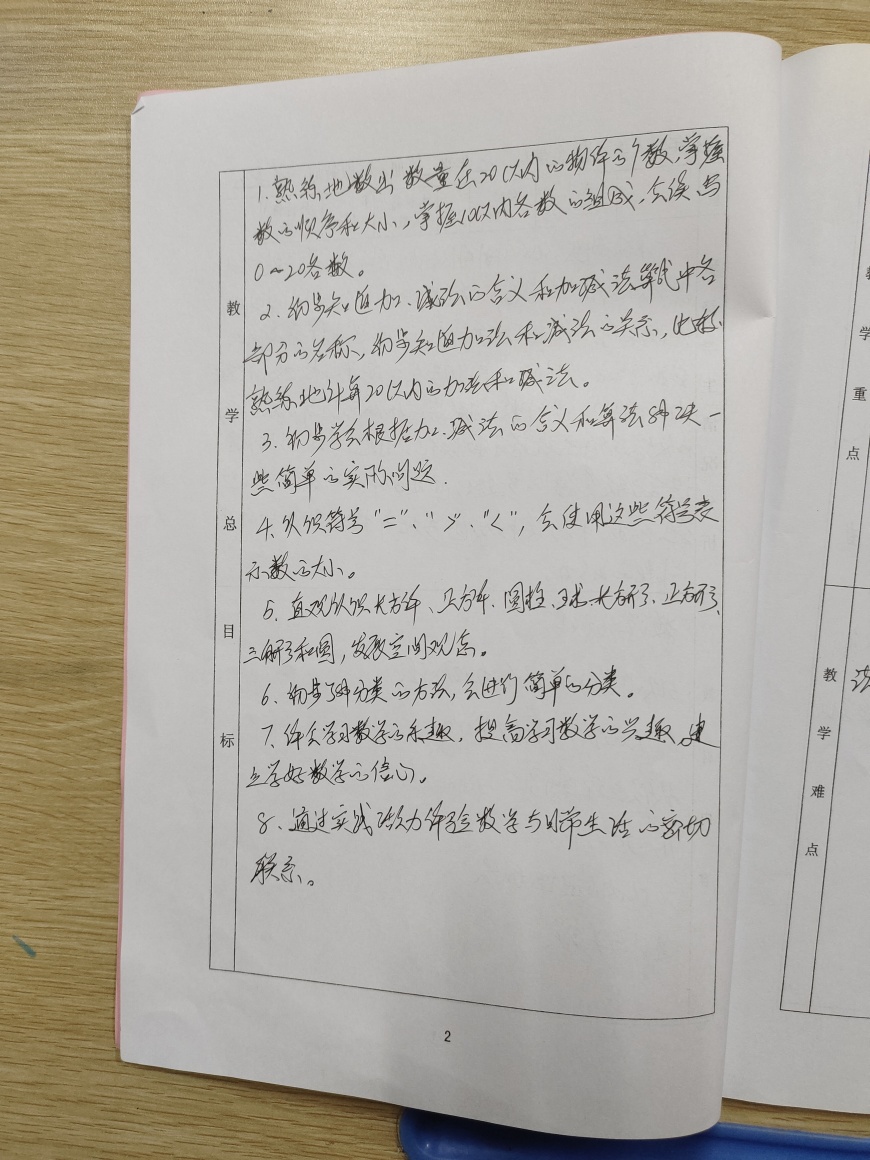 教学总目标
1.熟练地数出数量在20以内的物体的个数,掌握
数的顺序和大小,掌握10以内各数的组成,会读写
0~20各数。
2.初步知道加、减法的含义和加减法算式中各
部分的名称,初步知道加法和减法的关系,比较
熟练地计算20以内的加法和减法。
3.初步学会根据加、减法的含义和算法解决一
些简单的实际问题.
4.认识符号"="、">"、"<",会使用这些符号表
示数的大小。
5.直观认识长方体、正方体、圆柱、球、长方形、正方形、
三角形和圆,发展空间观念。
6、初步了解分类的方法,会进行简单的分类。
7、体会学习数学的乐趣,提高学习数学的兴趣,建
立学好数学的信心。
8、通过实践活动体验数学与日常生活的密切
联系。
2
教学重点
教学难点